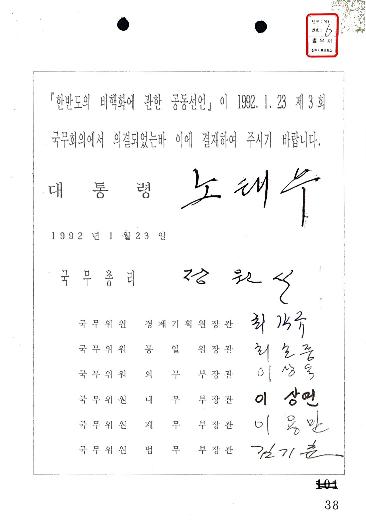 『한반도의 비핵화에 관한 공동선언』이 1992.1.23 제3회
국무회의에서 의결되었는바 이에 결재하여 주시기 바랍니다.
대 통 령 노태우
1992 년 1 월 23 일
국 무 총 리 정원식
국무위원 경제기획원장관 최각규
국무위원 통 일 원장관 최호중
국무위원 외 무 부장관 이상옥
국무위원 내 무 부장관 이상연
국무위원 재 무 부장관 이용만
국무위원 법 무 부장관 김기춘
101
38